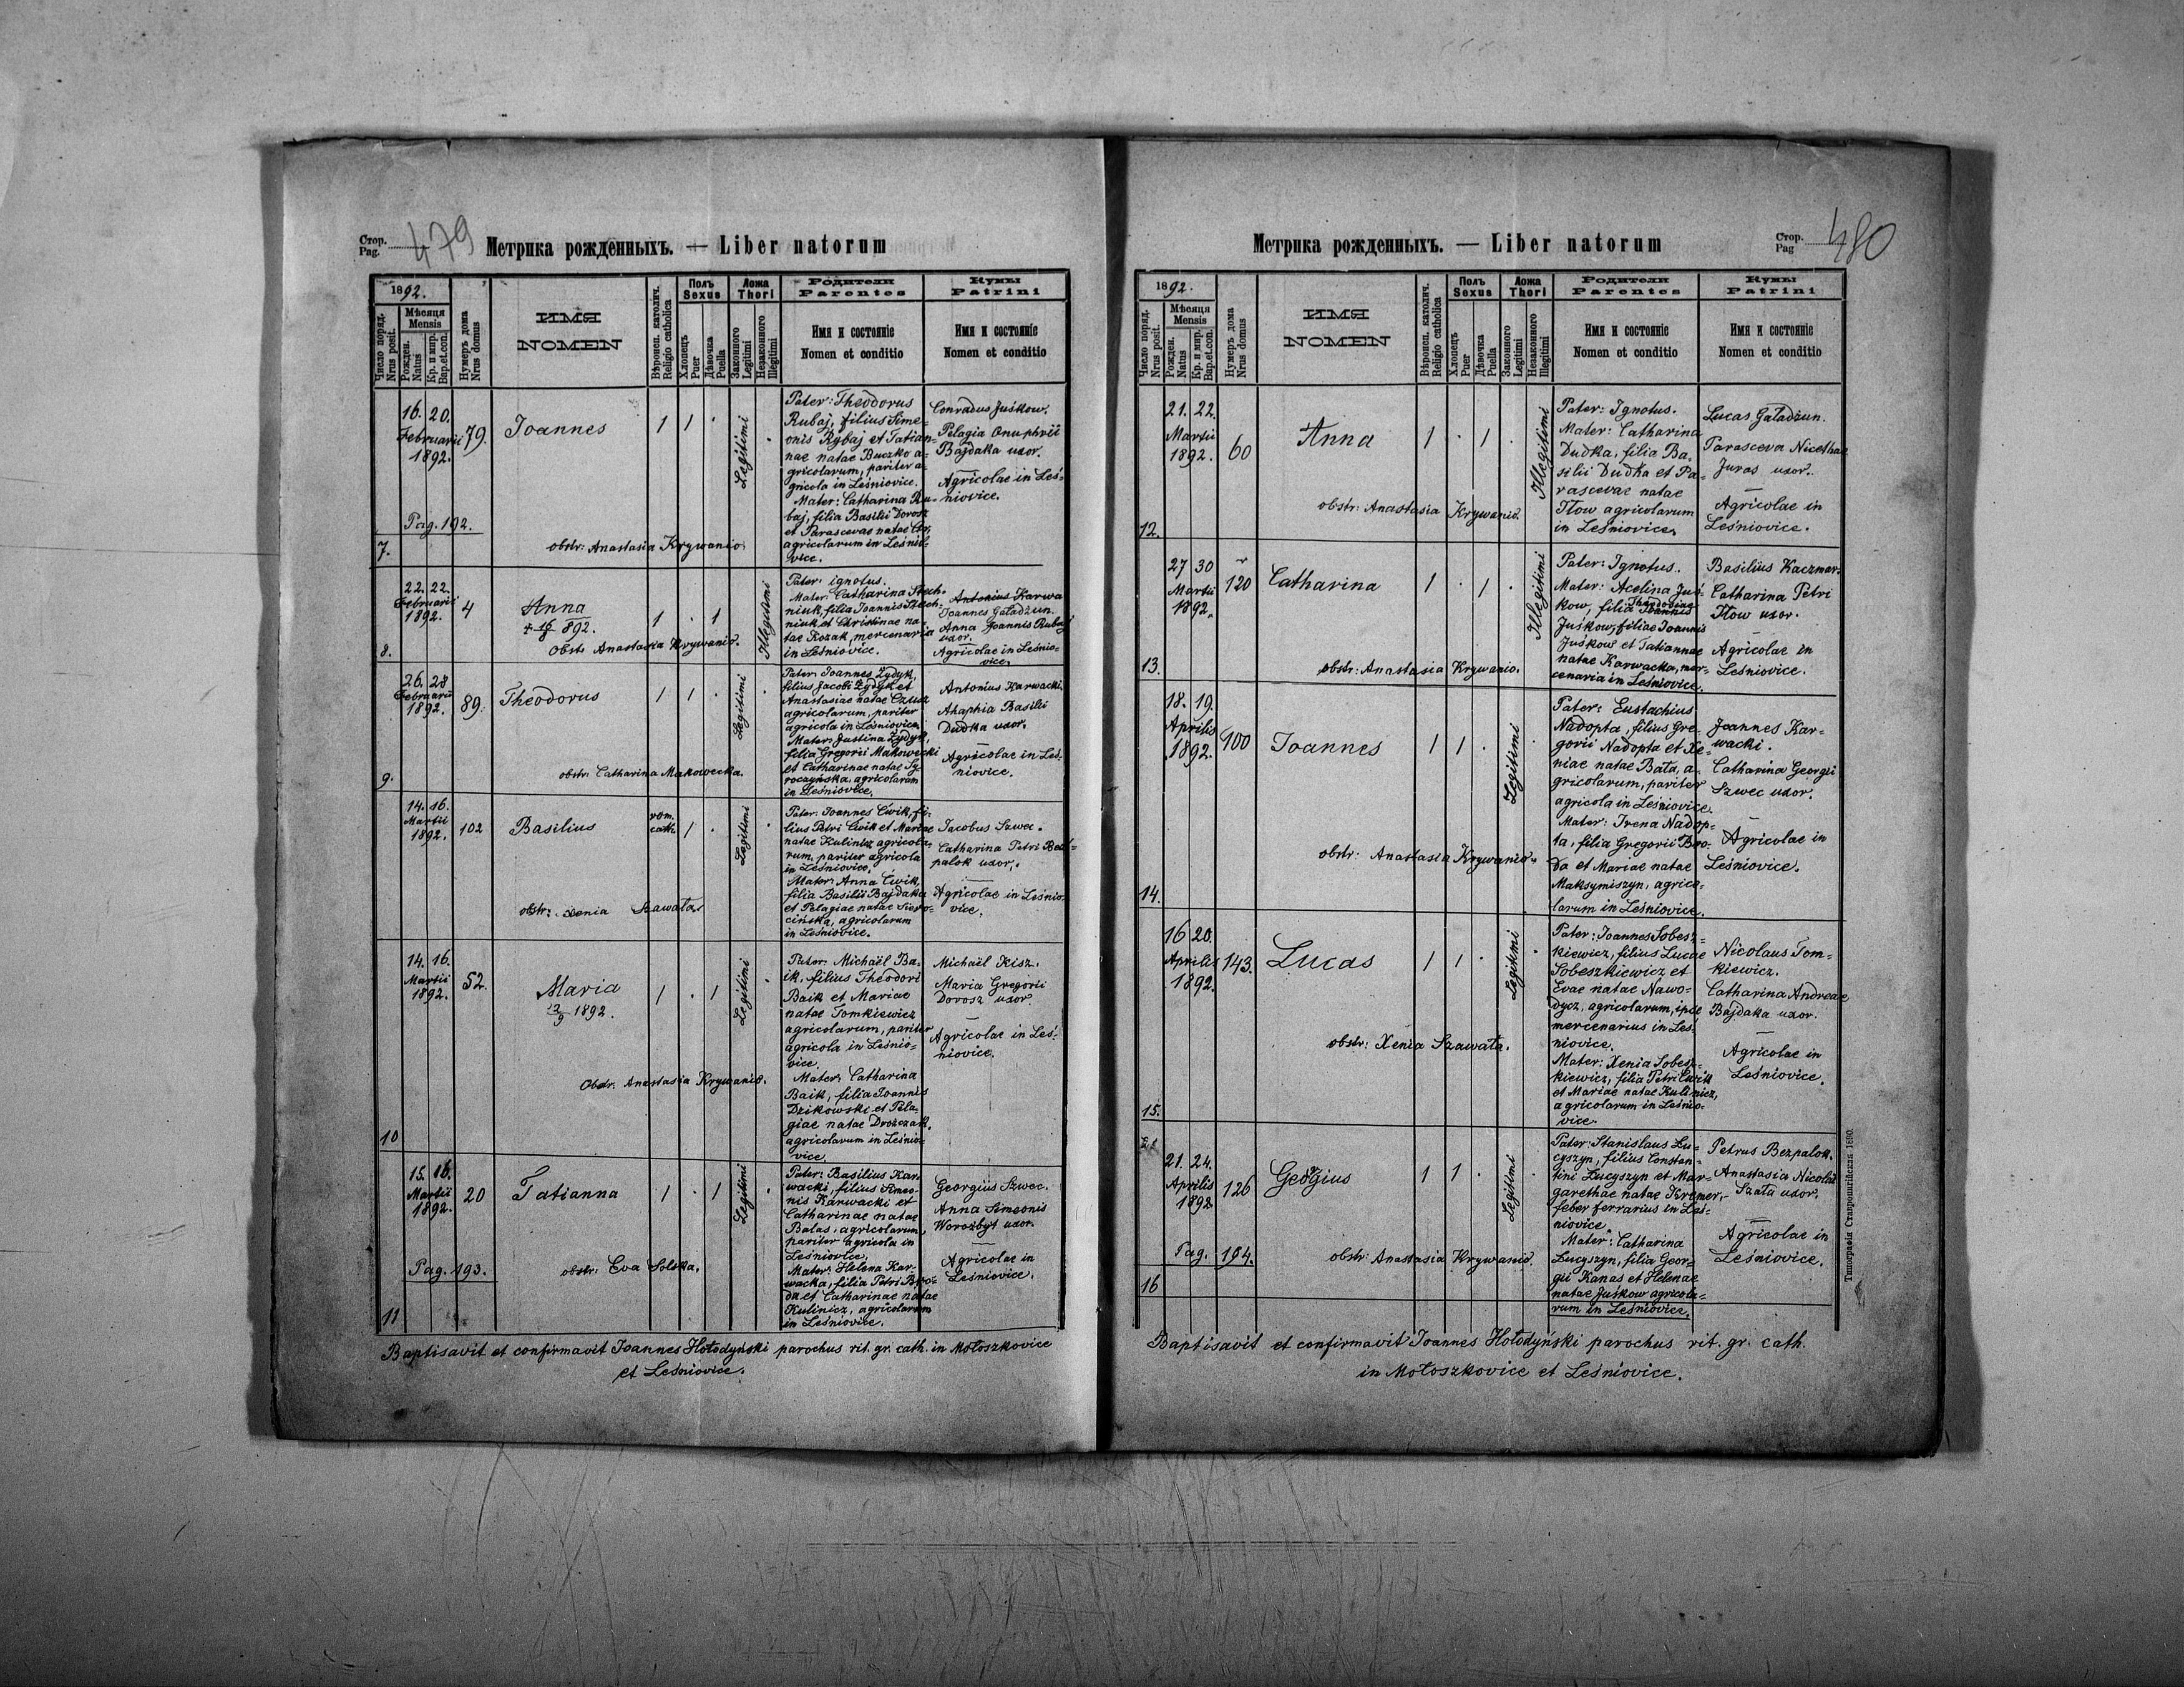 Стор.
Pag. 479
Метрика рожденныхъ. — Liber natorum
1892.
Число поряд.
Nrus posit.
Мѣсяця
Mensis
Рожден.
Natus
Кр. и мир.
Bap.et.con.
Нумеръ дома
Nrus domus
ИМЯ
NOMEN
Вѣроисп. католич.
Religio catholica
Полъ
Sexus
Хлопецъ
Puer
Дѣвочка
Puella
Ложа
Thori
Законного
Legitimi
Незаконного
Illegitimi
Родители
Parentes
Имя и состоянiе
Nomen et conditio
Кумы
Patrini
Имя и состоянiе
Nomen et conditio
7.
16. 20.
Februarii
1892.
79.
Joannes
1 1 .
Legitimi
Pater: Theodorus
Rubaj, filius Sime=
onis Rybaj et Tatian=
nae natae Buczko a=
gricolarum, pariter a=
gricola in Leśniovice.
Mater: Catharina Ru=
baj, filia Basilii Dorosz
et Parascevae natae
agricolarum in Leśnio=
vice.
Conradus Juśkow.
Pelagia Onuphrii
Bajdaka uxor.
Agricolae in Leś=
niovice.
Pag. 192.
obstr: Anastasia Krywanio
8.
22. 22.
Februarii
1892.
4
Anna
892.
1 . 1
Illegitimi
Pater: ignotus.
Mater: Catharina Stech=
niuk, filia Joannis Stech=
niuk et Christinae na=
tae Kozak, mercenaria
in Leśniovice.
Antonius Karwa
Joannes Gaładżun.
Anna Joannis Rubaj
uxor.
Agricolae in Leśnio=
vice.
Obstr Anastasia Krywanio.
9.
26. 28
Februarii
1892.
89.
Theodorus
1 1 .
Legitimi
Pater: Joannes Żydyk,
filius Jacobi Żydyk et
Anastasiae natae Czusz
agricolarum, pariter
agricola in Leśniovice.
Mater: Justina Żydyk,
filia Gregorii Makowecki
et Catharinae natae Sy=
roczyńska, agricolarum
in Leśniovice.
Antonius Karwacki,
Ahaphia Basilii
Dudka uxor.
Agricolae in Leś=
niovice.
obstr: Catharina Makowecka.
14. 16.
Martii
1892.
102
Basilius
rom.
cath.
1 .
Legitimi
Pater: Joannes Ćwik, fi=
lius Petri Ćwik et Mariae
natae Kulinicz agricola=
rum, pariter agricola
in Leśniovice.
Mater: Anna Ćwik,
filia Basilii Bajdaka
et Pelagiae natae Siero=
cińska, agricolarum
in Leśniovice.
Jacobus Szwec.
Catharina Petri Bez=
palok uxor.
Agricolae in Leśnio=
vice.
obstr: Xenia Szawała
10
14. 16.
Martii
1892.
52.
Maria
13/9 1892.
1 . 1
Legitimi
Pater: Michaël Ba=
ik, filius Theodori
Baik et Mariae
natae Tomkiewicz
agricolarum, pariter
agricola in Leśnio=
vice.
Mater: Catharina
Baik, filia Joannis
Dzikowski et Pela=
giae natae Drożczak,
agricolarum in Leśnio=
vice.
Michaël Kisz.
Maria Gregorii
Dorosz uxor.
Agricolae in Leś=
niovice.
Obstr. Anastasia Krywanio.
11
15. 16.
Martii
1892.
20
Tatianna
1 . 1
Legitimi
Pater: Basilius Kar=
wacki, filius Simeo=
nis Karwacki et
Catharinae natae
Balas, agricolarum,
pariter agricola in
Leśniovice.
Mater: Helena Kar=
wacka, filia Petri Bro=
da et Catharinae natae
Kulinicz, agricolarum
in Leśniovice.
Georgius Szwec.
Anna Simeonis
Worożbyt uxor.
Agricolae in
Leśniovice.
Pag. 193.
obstr: Eva Solska.
Baptisavit et confirmavit Joannes Hołodyński parochus rit. gr. cath. in Mołoszkovice
et Leśniovice.
Метрика рожденныхъ. — Liber natorum
Стор.
Pag 480
1892.
Число поряд.
Nrus posit.
Мѣсяця
Mensis
Рожден.
Natus
Кр. и мир.
Bap.et.con.
Нумеръ дома
Nrus domus
ИМЯ
NOMEN
Вѣроисп. католич.
Religio catholica
Полъ
Sexus
Хлопецъ
Puer
Дѣвочка
Puella
Ложа
Thori
Законного
Legitimi
Незаконного
Illegitimi
Родители
Parentes
Имя и состоянiе
Nomen et conditio
Кумы
Patrini
Имя и состоянiе
Nomen et conditio
12.
21. 22.
Martii
1892.
60
Anna
1 . 1 .
Illegitimi
Pater: Ignotus.
Mater: Catharina
Dudka, filia Ba=
silii Dudka et Pa=
rascevae natae
Tłow agricolarum
in Leśniovice.
Lucas Gaładżun.
Parasceva Nicethae
Juras uxor.
Agricolae in
Leśniovice.
obstr: Anastasia Krywanio.
13.
27 30
Martii
1892.
120
Catharina
1 . 1 .
Illegitimi
Pater: Ignotus.
Mater: Acelina Juś=
kow, filia Joannis
Theodosiae
Juśkow, filiae Joannis
Juśkow et Tatiannae
natae Karwacka, mer=
cenaria in Leśniovice.
Basilius Kaczmar.
Catharina Petri
Tłow uxor.
Agricolae in
Leśniovice.
obstr: Anastasia Krywanio.
14.
18. 19.
Aprilis
1892.
100
Joannes
1 1 .
Legitimi
Pater: Eustachius
Nadopta, filius Gre=
gorii Nadopta et Xe=
niae natae Bata, a=
gricolarum, pariter
agricola in Leśniovice.
Mater: Irena Nadop=
ta, filia Gregorii Bro=
da et Mariae natae
Maksymiszyn, agrico=
larum in Leśniovice.
Joannes Kar=
wacki.
Catharina Georgii
Szwec uxor.
Agricolae in
Leśniovice.
obstr: Anastasia Krywanio.
15.
16 20.
Aprilis
1892.
143.
Lucas
1 1 .
Legitimi
Pater: Joannes Sobesz=
kiewicz, filius Lucae
Sobeszkiewicz et
Evae natae Nawo=
dycz, agricolarum, ipse
mercenarius in Leś=
niovice.
Mater: Xenia Sobesz=
kiewicz, filia Petri Ćwik
et Mariae natae Kulinicz,
agricolarum in Leśnio=
vice.
Nicolaus Tom=
kiewicz.
Catharina Andreae
Bajdaka uxor.
Agricolae in
Leśniovice.
obstr: Xenia Szawała.
16
21. 24.
Aprilis
1892
126
Georgius
1 1 .
Legitimi
Pater: Stanislaus Lu=
cyszyn, filius Constan=
tini Lucyszyn et Mar=
garethae natae Kremer,
feber ferrarius in Leś=
niovice.
Mater: Catharina
Lucyszyn, filia Geor=
gii Kanas et Helenae
natae Juśkow agricola=
rum in Leśniovice.
Petrus Bezpalok.
Anastasia Nicolai
Szała uxor.
Agricolae in
Leśniovice.
Pag. 194.
obstr: Anastasia Krywanio.
Baptisavit et confirmavit Joannes Hołodyński parochus rit. gr. cath.
in Mołoszkovice et Leśniovice.
Типографiя Ставропигiйская 1890.